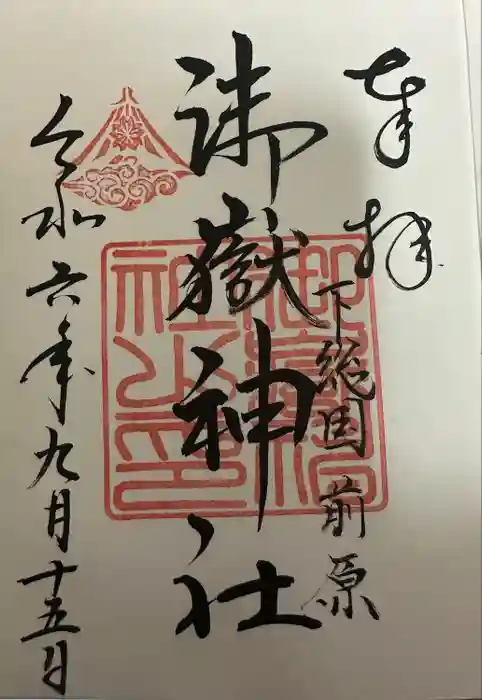 奉拝
下総国前原
御嶽神社
令和六年九月十五日
御嶽神社之印